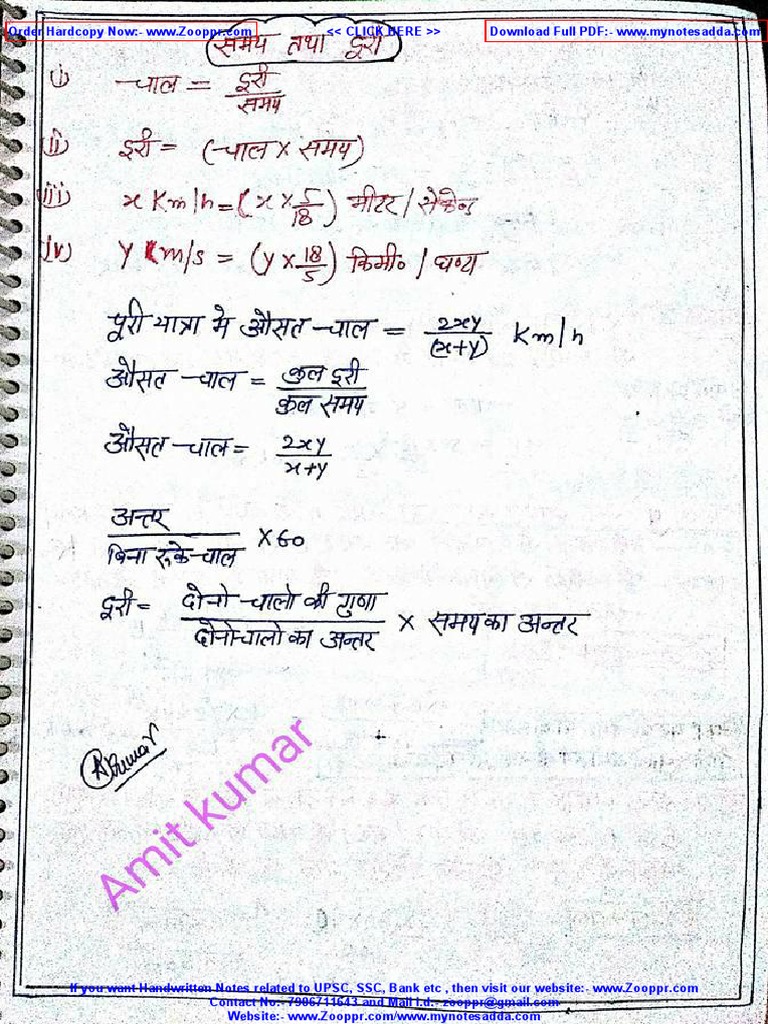 Order Hardcopy Now:- www.Zooppr.com << CLICK HERE >> Download Full PDF:- www.mynotesadda.com
समय तथा दूरी
(i) चाल = दूरी / समय
(ii) दूरी = (चाल × समय)
(iii) x Km/h = (x × 5/18) मीटर / सेकेन्ड
(iv) y Km/s = (y × 18/5) किमी० / घण्टा
पूरी यात्रा मे औसत चाल = 2xy / (x+y) Km/h
औसत चाल = कुल दूरी / कुल समय
औसत चाल = 2xy / x+y
अन्तर / बिना रुके चाल × 60
दूरी = दोनो चालो की गुणा / दोनो चालो का अन्तर × समय का अन्तर
AKumar
Amit kumar
If you want Handwritten Notes related to UPSC, SSC, Bank etc , then visit our website:- www.Zooppr.com
Contact No:- 7906711643 and Mail i.d:- zooppr@gmail.com
Website:- www.Zooppr.com/www.mynotesadda.com